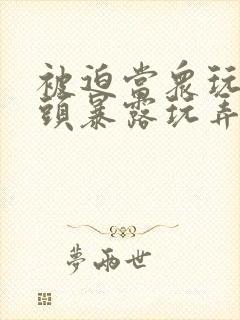 被迫當眾玩
頭暴露玩弄
夢兩世